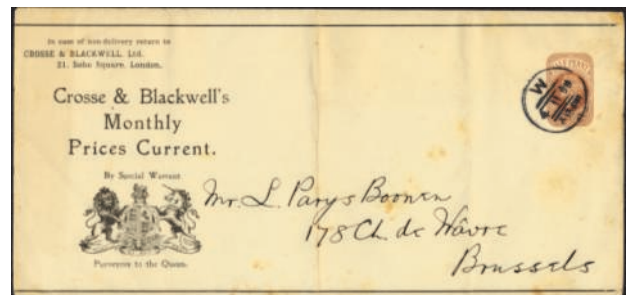 In case of non-delivery return to
CROSSE & BLACKWELL, Ltd.
21, Soho Square, London.
Crosse & Blackwell's
Monthly
Prices Current.
By Special Warrant
Purveyors to the Queen.
W
Mr. L. Parys Boonen
178 Ch. de Wavre
Brussels